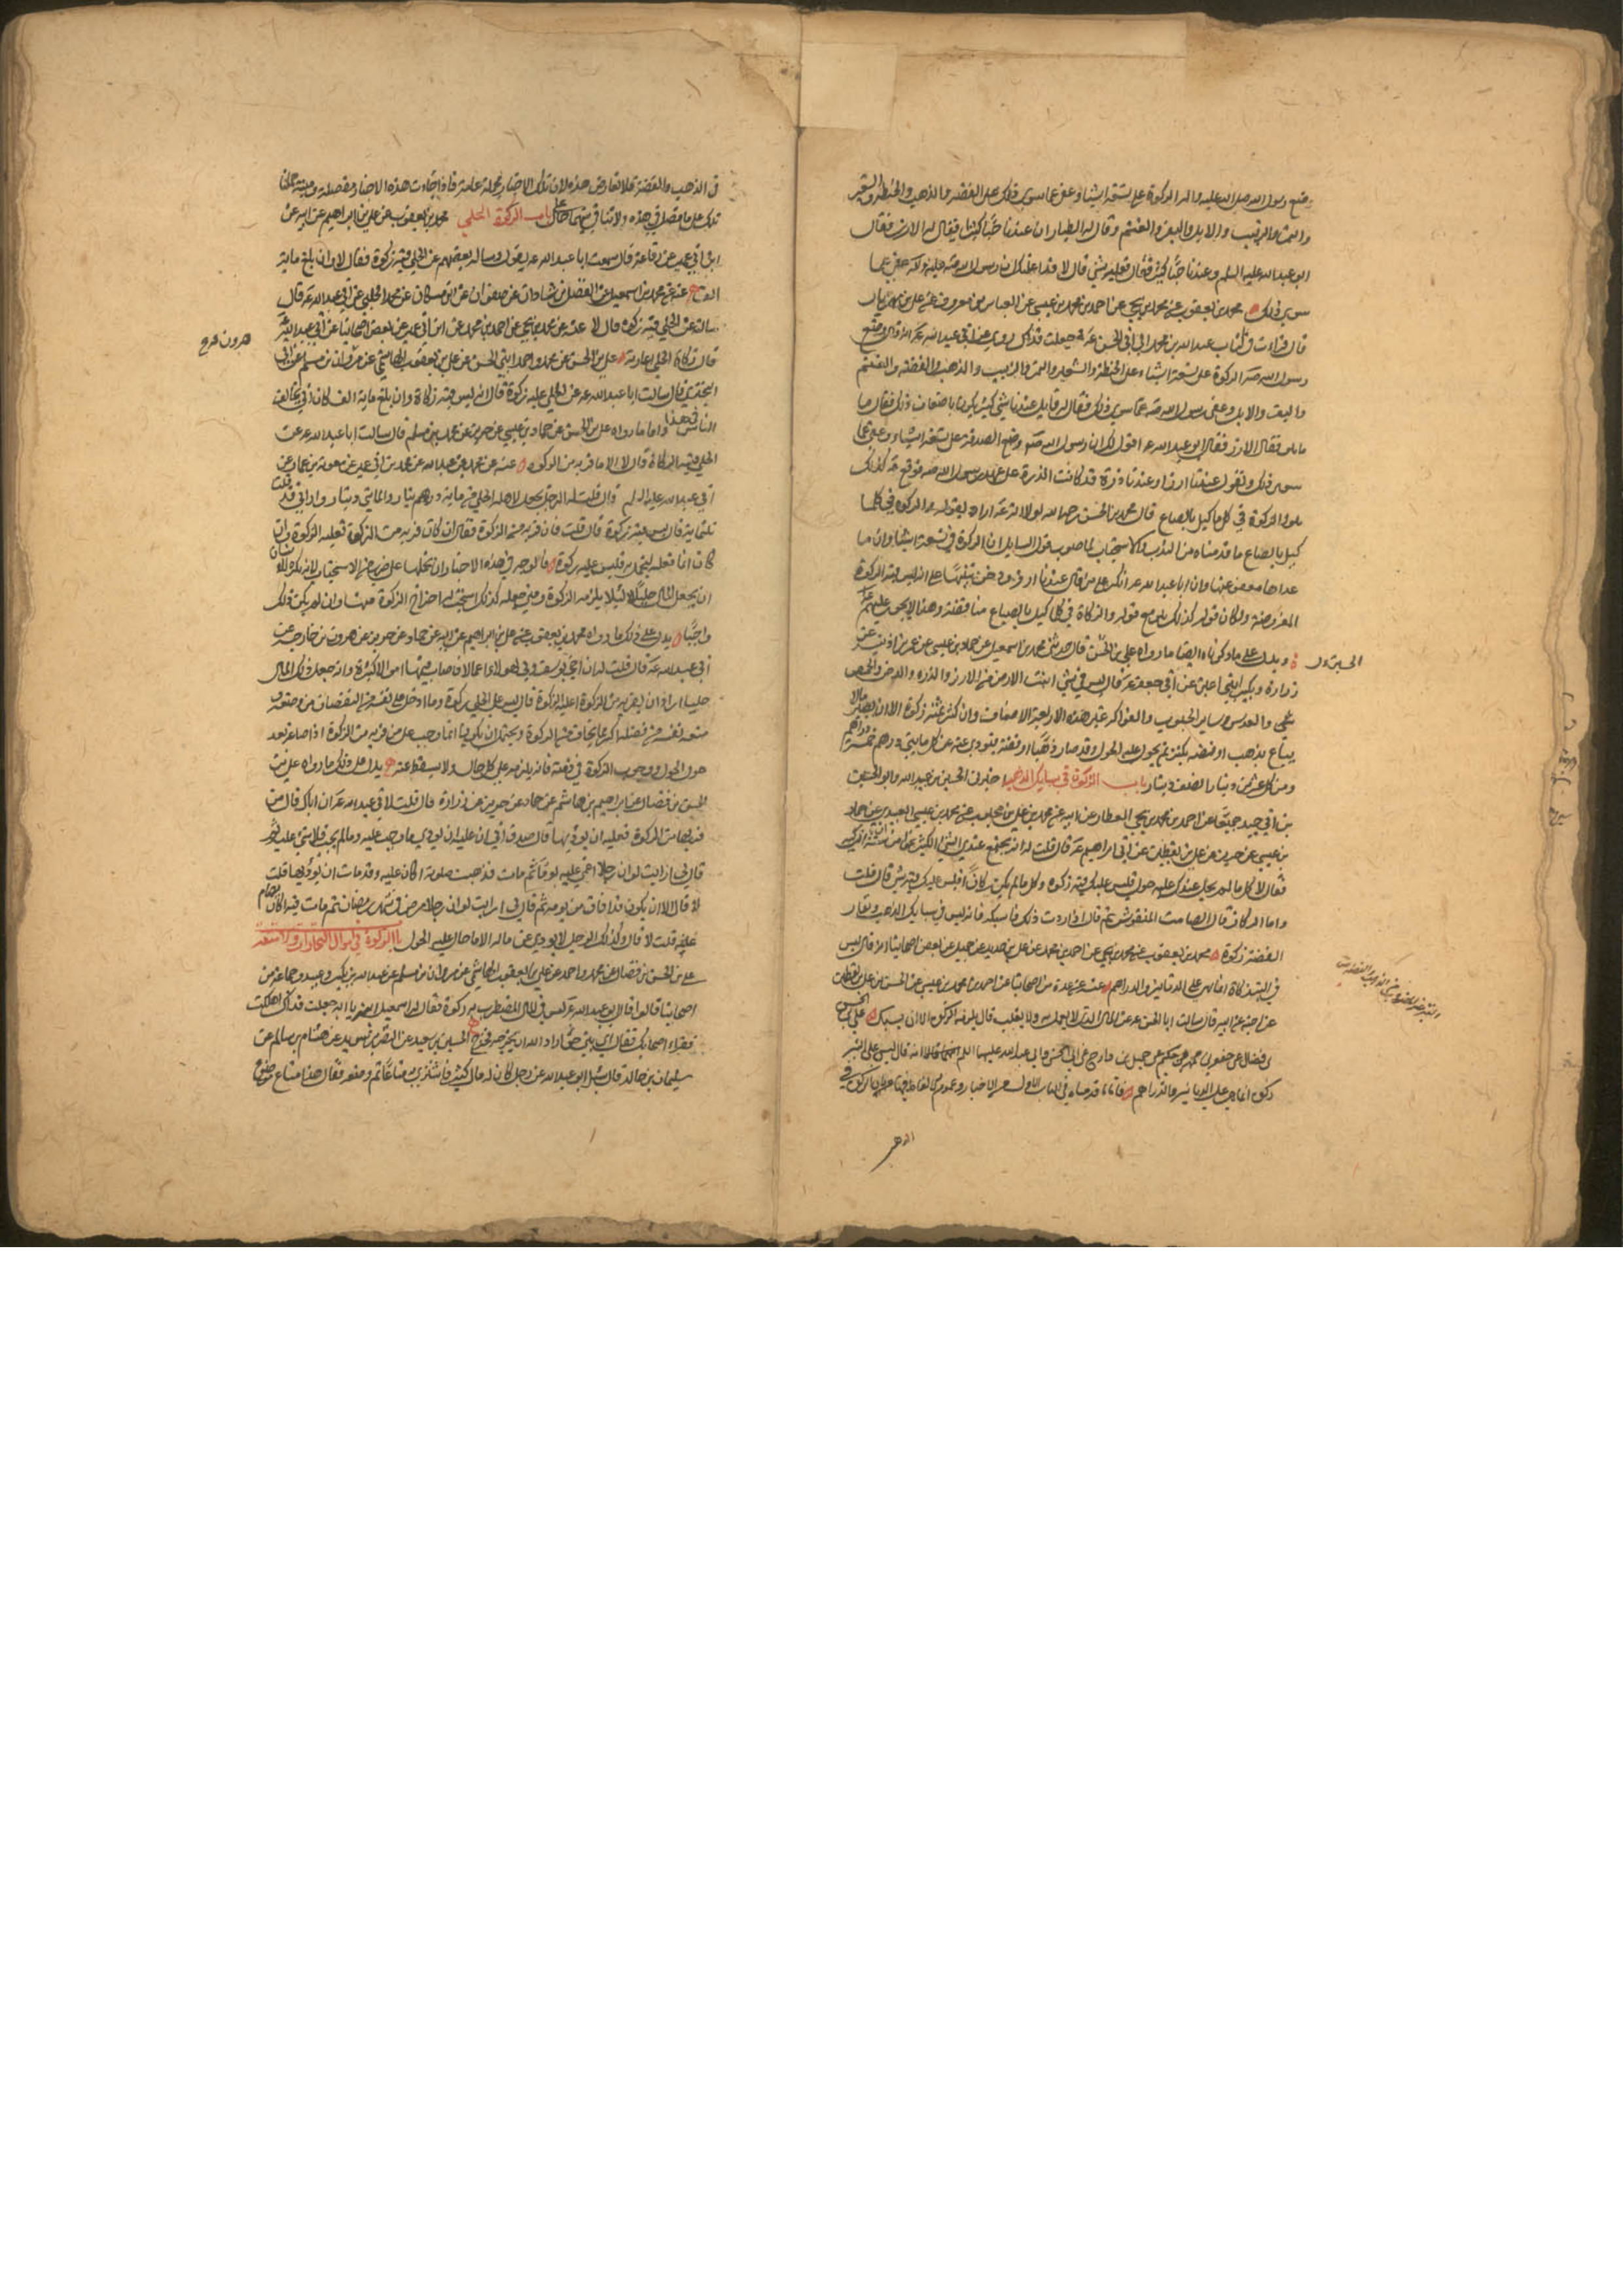 وضع رسول الله صلى الله عليه واله الزكوة على تسعة اشياء وعفى عما سوى ذلك على الفضة والذهب والحنطة والشعير
والتمر والزبيب والابل والبقر والغنم وقال له الطيار ان عندنا حبا كثيرا فيقال له الارز فقال
ابو عبد الله عليه السلم وعندنا حب كثير قال فعليه شيء قال لا قد اعلمتك ان رسول الله صه عليه واله عفى عما
سوى ذلك محمد بن يعقوب عن محمد بن يحيى عن احمد بن محمد بن عيسى عن العباس بن معروف عن علي بن مهزيار
قال قرات في كتاب عبد الله بن محمد الى ابي الحسن ع جعلت فداك روي عن ابي عبد الله ع انه قال وضع
رسول الله صه الزكوة على تسعة اشياء على الحنطة والشعير والتمر والزبيب والذهب والفضة والغنم
والبقر والابل وعفى رسول الله صه عما سوى ذلك فقال له قايل عندنا شيء كثير يكون باضعاف ذلك فقال ما
هو فقال الارز فقال ابو عبد الله ع اقول لك ان رسول الله صه وضع الصدقة على تسعة اشياء وعفى عما
سوى ذلك وتقول عندنا ارز وعندنا ذرة قد كانت الذرة على عهد رسول الله صه فوقع ع كذلك
هو والزكوة في كل ما كيل بالصاع قال محمد بن الحسن رحمه الله لولا انه ع اراد بقوله والزكوة في كلما
كيل بالصاع ما قدمناه من الندب والاستحباب لما صوب قول السايل ان الزكوة في تسعة اشياء وان ما
عداها معفو عنها وان ابا عبد الله ع انكر على من قال عندنا ارز ودخن تنبيها على انه ليس فيه الزكوة
المفروضة ولكان قوله كذلك هو مع قوله والزكاة في كل ما كيل بالصاع مناقضة وهذا لا يجوز عليهم ع
ويدل على ما ذكرناه ايضا ما رواه علي بن الحسن قال حدثني محمد بن اسمعيل عن حماد بن عيسى عن عمر بن اذينة عن
زرارة وبكير ابني اعين عن ابي جعفر ع قال ليس في شيء انبتت الارض من الارز والذرة والدخن والحمص
شيء والعدس وساير الحبوب والفواكه غير هذه الاربعة الاصناف وان كثر ثمنه زكوة الا ان يصير مالا
يباع بذهب او فضة يكنزه ثم يحول عليه الحول وقد صار ذهبا او فضة فيودي عنه عن كل مايتي درهم خمسة دراهم
ومن كل عشرين دينارا نصف دينار باب الزكوة في سبايك الذهب اخبرني الحسين بن عبيد الله وابو الحسين
بن ابي جيد جميعا عن احمد بن محمد بن يحيى العطار عن ابيه عن محمد بن علي بن محبوب عن محمد بن عيسى العبيدي عن حماد
بن عيسى عن حريز عن علي بن يقطين عن ابي ابراهيم ع قال قلت له انه يجتمع عندي الشيء الكثير نحوا من سنة انزكيه
فقال لا كل ما لم يحل عندك عليه حول فليس عليك فيه زكوة وكل ما لم يكن ركازا فليس عليك فيه شيء قال قلت
وما الركاز قال الصامت المنقوش ثم قال اذا اردت ذلك فاسبكه فانه ليس في سبايك الذهب ونقار
الفضة زكوة محمد بن يعقوب عن محمد بن يحيى عن احمد بن محمد عن علي بن حديد عن جميل عن بعض اصحابنا انه قال ليس
في التبر زكاة انما هي على الدنانير والدراهم عنه عن عدة من اصحابنا عن احمد بن محمد بن عيسى عن الحسن بن علي بن يقطين
عن اخيه عن ابيه قال سالت ابا الحسن ع عن المال الذي لا يعمل به ولا يقلب قال يلزمه الزكوة الا ان يسبك علي بن الحسن
بن فضال عن جعفر بن محمد بن حكيم عن جميل بن دراج عن ابي عبد الله وابي الحسن عليهما السلم انه قال ليس على التبر
زكوة انما هي على الدنانير والدراهم
الذهب
في الذهب والفضة فلا تعارض هذه لان تلك الاخبار مجملة عامة فاذا جاءت هذه الاخبار مفصلة ومبينة حملنا
تلك على ما فصل في هذه ولا تنافي بينهما على حال باب الزكوة الحلي محمد بن يعقوب عن علي بن ابراهيم عن ابيه عن
ابن ابي عمير عن رفاعة قال سمعت ابا عبد الله ع يقول وساله بعضهم عن الحلي فيه زكوة فقال لا وان بلغ ماية
الف عنه عن محمد بن اسمعيل عن الفضل بن شاذان عن صفوان عن ابن مسكان عن محمد الحلبي عن ابي عبد الله ع قال
سالته عن الحلي فيه زكوة قال لا عنه عن محمد بن يحيى عن احمد بن محمد عن ابن ابي عمير عن بعض اصحابنا عن ابي عبد الله ع
قال زكاة الحلي عاريته علي بن الحسن عن محمد واحمد ابني الحسن عن علي بن يعقوب الهاشمي عن مروان بن مسلم عن ابي
الحسن قال سالت ابا عبد الله ع عن الحلي عليه زكوة قال انه ليس فيه زكاة وان بلغ ماية الف كان ابي يخالف
الناس في هذا واما ما رواه علي بن الحسن عن حماد بن عيسى عن حريز عن محمد بن مسلم قال سالت ابا عبد الله ع عن
الحلي فيه الزكاة قال لا الا ما فر به من الزكوة عنه عن محمد بن عبد الله عن محمد بن ابي عمير عن معوية بن عمار عن
ابي عبد الله عليه السلم قال قلت له الرجل يجعل لاهله الحلي من ماية دينار والمايتي دينار واراني قد قلت
ثلثماية قال ليس فيه زكوة قال قلت فان فر به من الزكوة فقال ان كان فر به من الزكوة فعليه الزكوة وان
كان انما فعله ليتجمل به فليس عليه زكوة فالوجه في هذه الاخبار ان نحملها على ضرب من الاستحباب لانه يكره للانسان
ان يجعل المال حليا لئلا يلزمه الزكوة ومتى جعله كذلك استحب له اخراج الزكوة منه وان لم يكن ذلك
واجبا يدل على ذلك ما رواه محمد بن يعقوب عن علي بن ابراهيم عن ابيه عن حماد عن حريز عن هرون بن خارجة عن
ابي عبد الله ع قال قلت له ان اخي يوسف ولي لهولاء اعمالا اصاب فيها اموالا كثيرة وانه جعل ذلك المال
حليا اراد ان يفر به من الزكوة اعليه الزكوة قال ليس على الحلي زكوة وما ادخل على نفسه من النقصان في وضعه
ومنعه نفسه فضله اكثر مما يخاف من الزكوة ويحتمل ان يكون انما وجب على من فر به من الزكوة اذا صاغه بعد
حول الحول ووجوب الزكوة في ذمته فانه يلزمه على كل حال ولا يسقط عنه يدل على ذلك ما رواه علي بن
الحسن بن فضال عن ابراهيم بن هاشم عن حماد عن حريز عن زرارة قال قلت لابي عبد الله ع ان اباك قال من
فر بها من الزكوة فعليه ان يوديها قال صدق ابي ان عليه ان يودي ما وجب عليه وما لم يجب فلا شيء عليه ثم
قال لي ارايت لو ان رجلا اغمي عليه يوما ثم مات فذهبت صلوته اكان عليه وقد مات ان يوديها قلت
لا قال الا ان يكون قد افاق من يومه ثم قال لي ارايت لو ان رجلا مرض في شهر رمضان ثم مات فيه اكان يصام
عنه قلت لا قال وكذلك الرجل لا يودي عن ماله الا ما حال عليه الحول باب الزكوة في اموال التجارات والامتعة
علي بن الحسن بن فضال عن محمد واحمد عن علي بن يعقوب الهاشمي عن مروان بن مسلم عن عبد الله بن بكير وعبيد وجماعة من
اصحابنا قالوا قال ابو عبد الله ع ليس في المال المضطرب به زكوة فقال له اسمعيل ابنه يا ابه جعلت فداك اهلكت
فقراء اصحابك فقال اي بني حق اراد الله ان يخرجه فخرج الحسين بن سعيد عن النضر بن سويد عن هشام بن سالم عن
سليمان بن خالد قال سئل ابو عبد الله ع عن رجل كان له مال كثير فاشترى به متاعا ثم وضعه فقال هذا متاع موضوع
هرون خرج